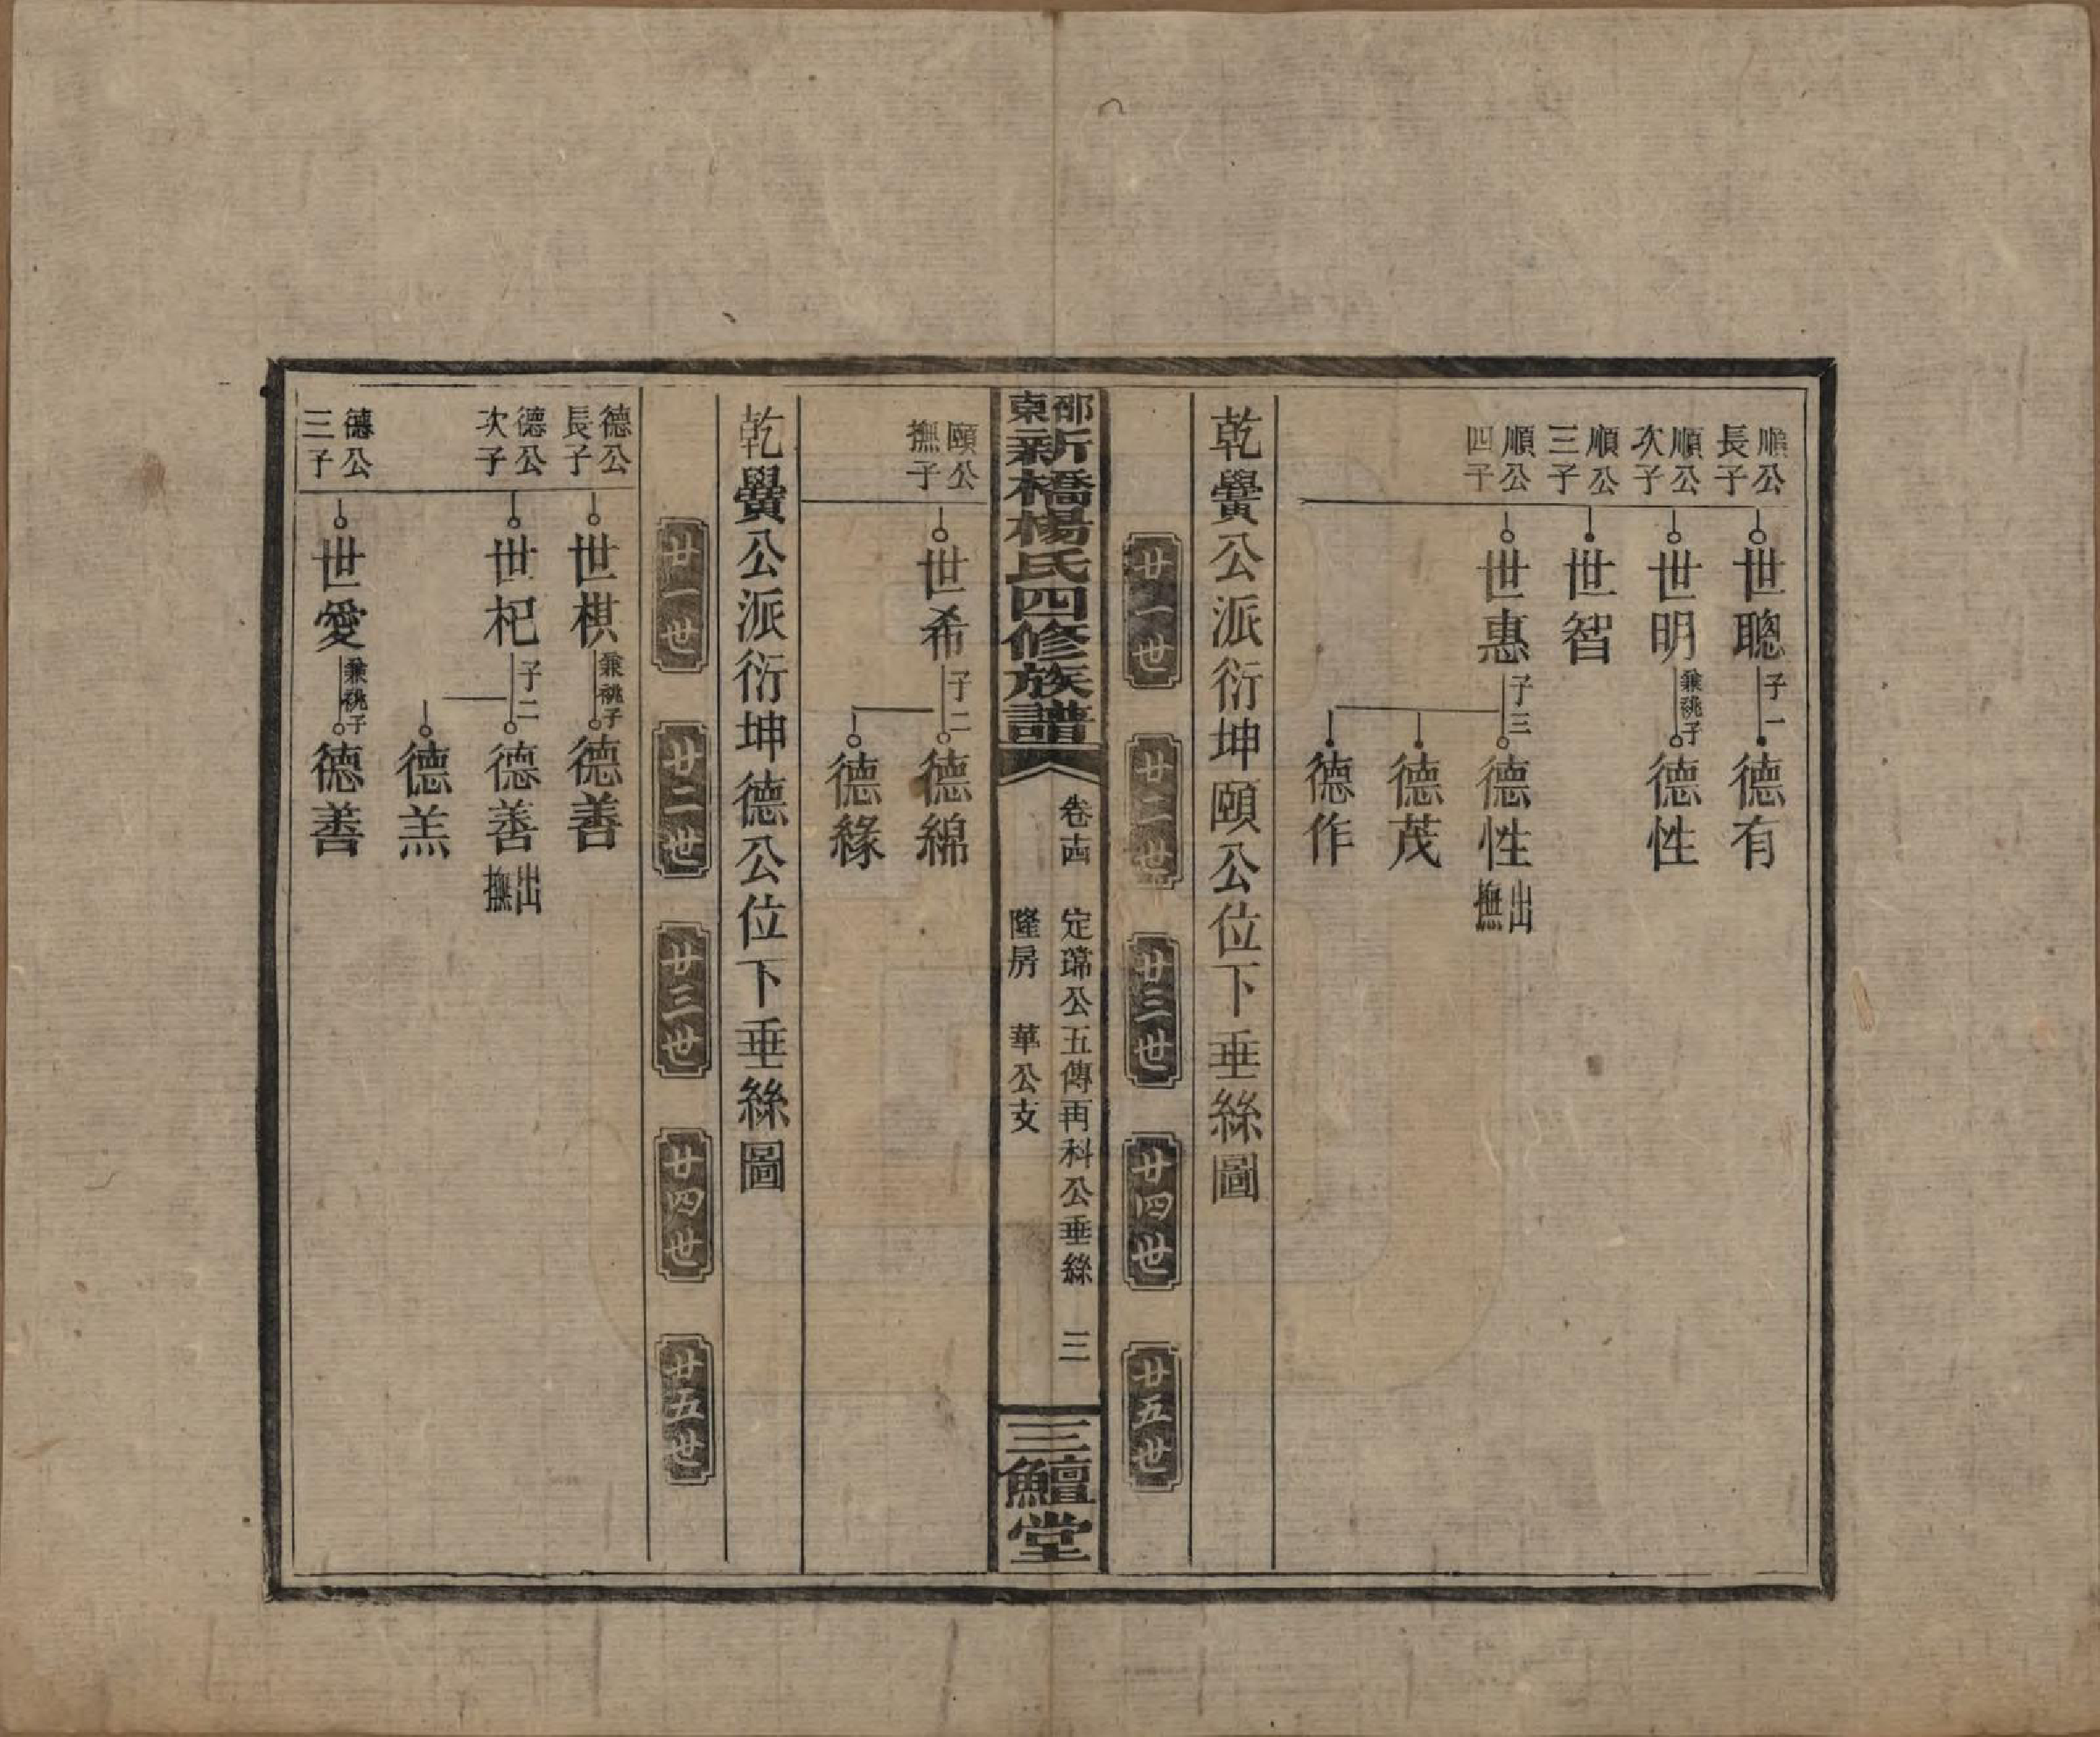 順公長子 世聰 子一 德有
順公次子 世明 兼祧子 德性
順公三子 世智
順公四子 世惠 子三 德性 出撫
德茂
德作
乾黌公派衍坤頤公位下垂絲圖
廿一世 廿二世 廿三世 廿四世 廿五世
邵東新橋楊氏四修族譜 卷十四 定瑞公五傳再科公垂絲 三
隆房 華公支
三鱣堂
頤公撫子 世希 子二 德綿
德緣
乾黌公派衍坤德公位下垂絲圖
廿一世 廿二世 廿三世 廿四世 廿五世
德公長子 世棋 兼祧子 德善
德公次子 世杞 子二 德善 出撫
德羔
德公三子 世愛 兼祧子 德善